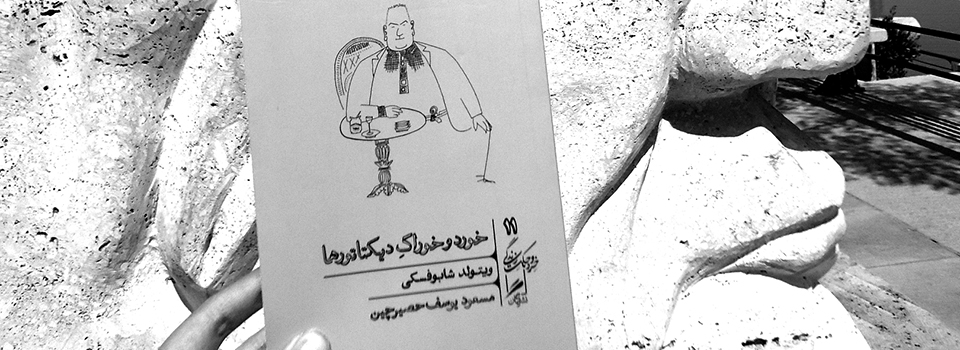 خورد و خوراکِ دیکتاتورها
ویتولد شابوفسکی
مسعود یوسف حصیرچین